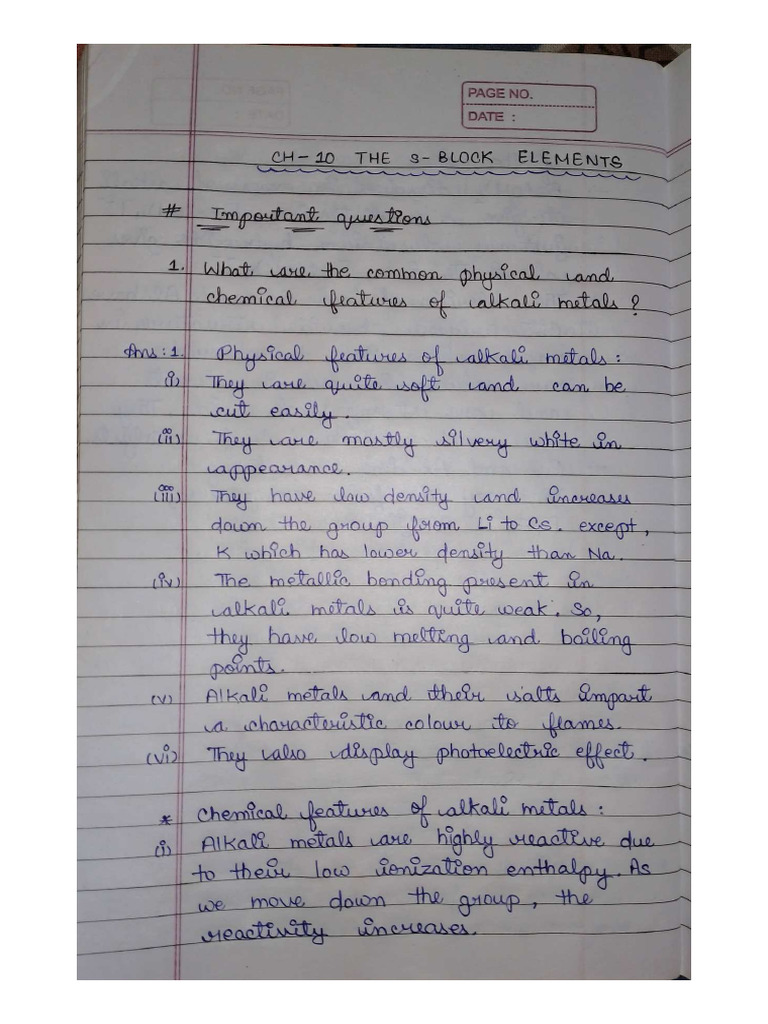 PAGE NO.
DATE :
CH-10 THE S-BLOCK ELEMENTS
# Important questions
1. What are the common physical and
chemical features of alkali metals ?
Ans:1. Physical features of alkali metals :
(i) They are quite soft and can be
cut easily.
(ii) They are mostly silvery white in
appearance.
(iii) They have low density and increases
down the group from Li to Cs. except,
K which has lower density than Na.
(iv) The metallic bonding present in
alkali metals is quite weak. So,
they have low melting and boiling
points.
(v) Alkali metals and their salts impart
a characteristic colour to flames.
(vi) They also display photoelectric effect.
* Chemical features of alkali metals :
(i) Alkali metals are highly reactive due
to their low ionization enthalpy. As
we move down the group, the
reactivity increases.